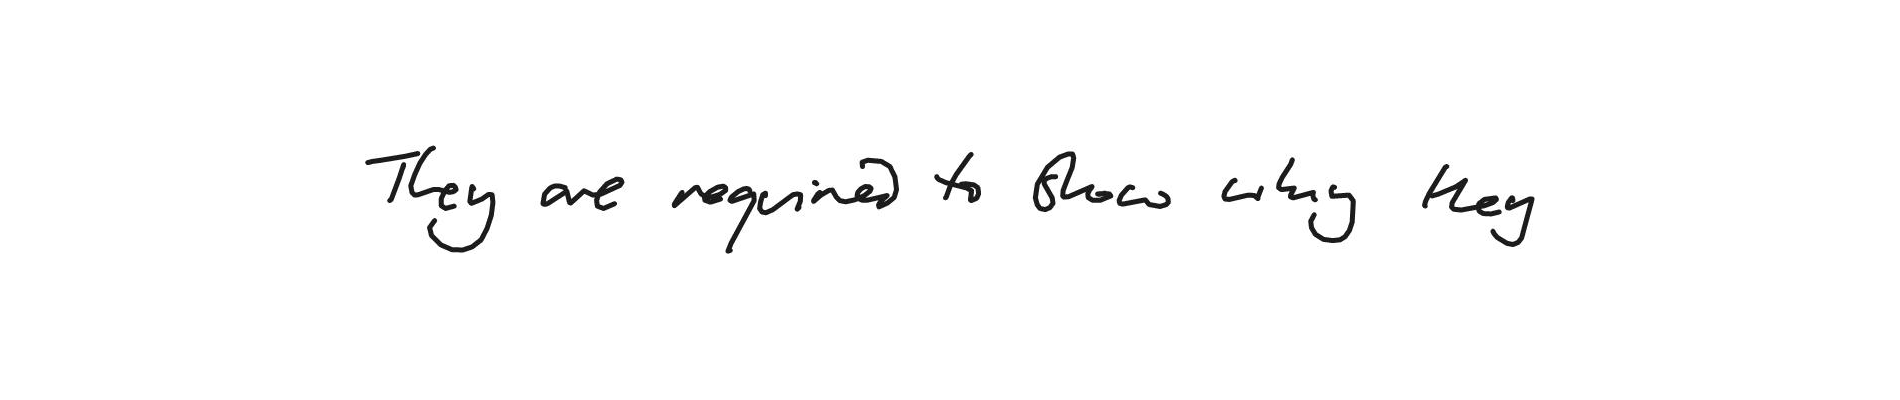 They are required to show why they